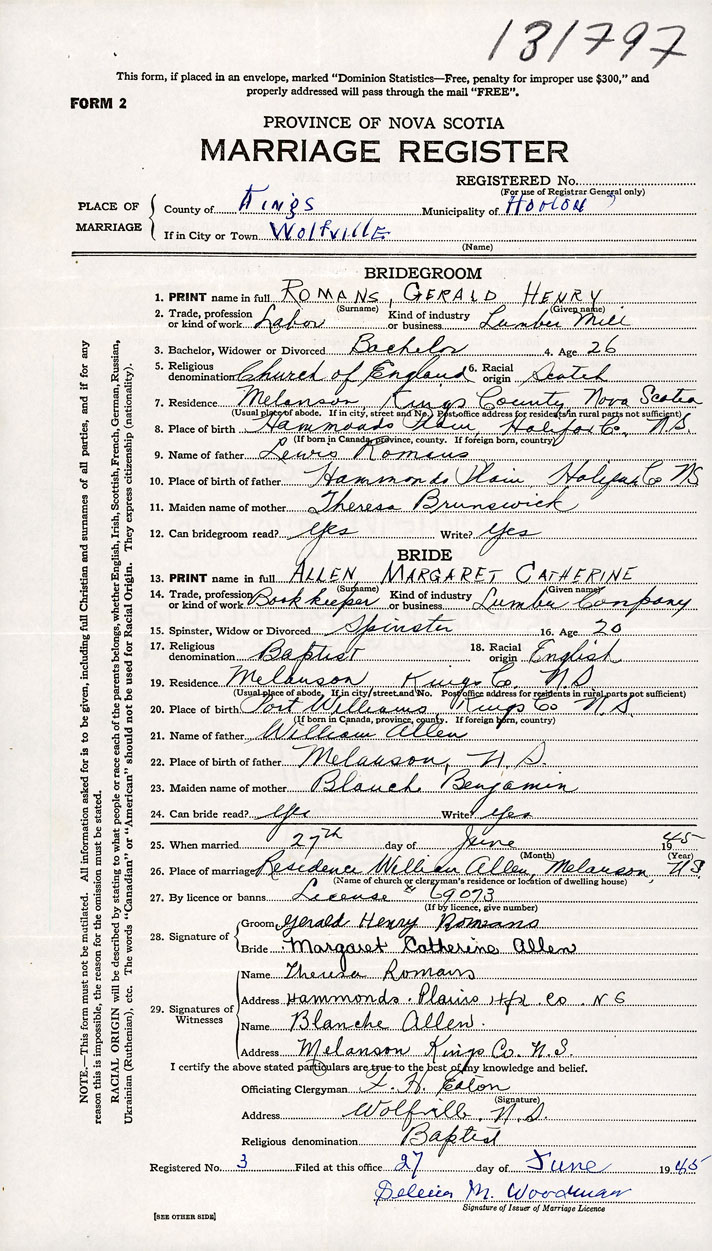 131797
This form, if placed in an envelope, marked "Dominion Statistics—Free, penalty for improper use $300," and
properly addressed will pass through the mail "FREE".
FORM 2
PROVINCE OF NOVA SCOTIA
MARRIAGE REGISTER
REGISTERED No.
(For use of Registrar General only)
PLACE OF MARRIAGE
County of Kings Municipality of Horton
If in City or Town Wolfville
(Name)
BRIDEGROOM
1. PRINT name in full ROMANS, GERALD HENRY
(Surname) (Given name)
2. Trade, profession or kind of work Labor Kind of industry or business Lumber Mill
3. Bachelor, Widower or Divorced Bachelor 4. Age 26
5. Religious denomination Church of England 6. Racial origin Scotch
7. Residence Melanson Kings County, Nova Scotia
(Usual place of abode. If in city, street and No. Post office address for residents in rural parts not sufficient)
8. Place of birth Hammonds Plain, Halifax Co. N.S.
(If born in Canada, province, county. If foreign born, country)
9. Name of father Lewis Romans
10. Place of birth of father Hammonds Plain Halifax Co NS
11. Maiden name of mother Theresa Brunswick
12. Can bridegroom read? Yes Write? Yes
BRIDE
13. PRINT name in full ALLEN MARGARET CATHERINE
(Surname) (Given name)
14. Trade, profession or kind of work Bookkeeper Kind of industry or business Lumber Company
15. Spinster, Widow or Divorced Spinster 16. Age 20
17. Religious denomination Baptist 18. Racial origin English
19. Residence Melanson Kings Co. N.S.
(Usual place of abode. If in city/street and No. Post office address for residents in rural parts not sufficient)
20. Place of birth Port Williams Kings Co N.S.
(If born in Canada, province, county. If foreign born, country)
21. Name of father William Allen
22. Place of birth of father Melanson, N.S.
23. Maiden name of mother Blanch Benjamin
24. Can bride read? Yes Write? Yes
25. When married 27th day of June 1945
(Month) (Year)
26. Place of marriage Residence William Allen, Melanson, NS
(Name of church or clergyman's residence or location of dwelling house)
27. By licence or banns License 69073
(If by licence, give number)
28. Signature of
Groom Gerald Henry Romans
Bride Margaret Catherine Allen
29. Signatures of Witnesses
Name Theresa Romans
Address Hammonds Plains Hfx Co NS
Name Blanche Allen.
Address Melanson Kings Co. N.S.
I certify the above stated particulars are true to the best of my knowledge and belief.
Officiating Clergyman H. Eaton
(Signature)
Address Wolfville, N.S.
Religious denomination Baptist
Registered No. 3 Filed at this office 27 day of June 1945
M. Woodman
Signature of Issuer of Marriage Licence
[SEE OTHER SIDE]
NOTE.—This form must not be mutilated. All information asked for is to be given, including full Christian and surnames of all parties, and if for any
reason this is impossible, the reason for the omission must be stated.
RACIAL ORIGIN will be described by stating to what people or race each of the parents belongs, whether English, Irish, Scottish, French, German, Russian,
Ukrainian (Ruthenian), etc. The words "Canadian" or "American" should not be used for Racial Origin. They express citizenship (nationality).